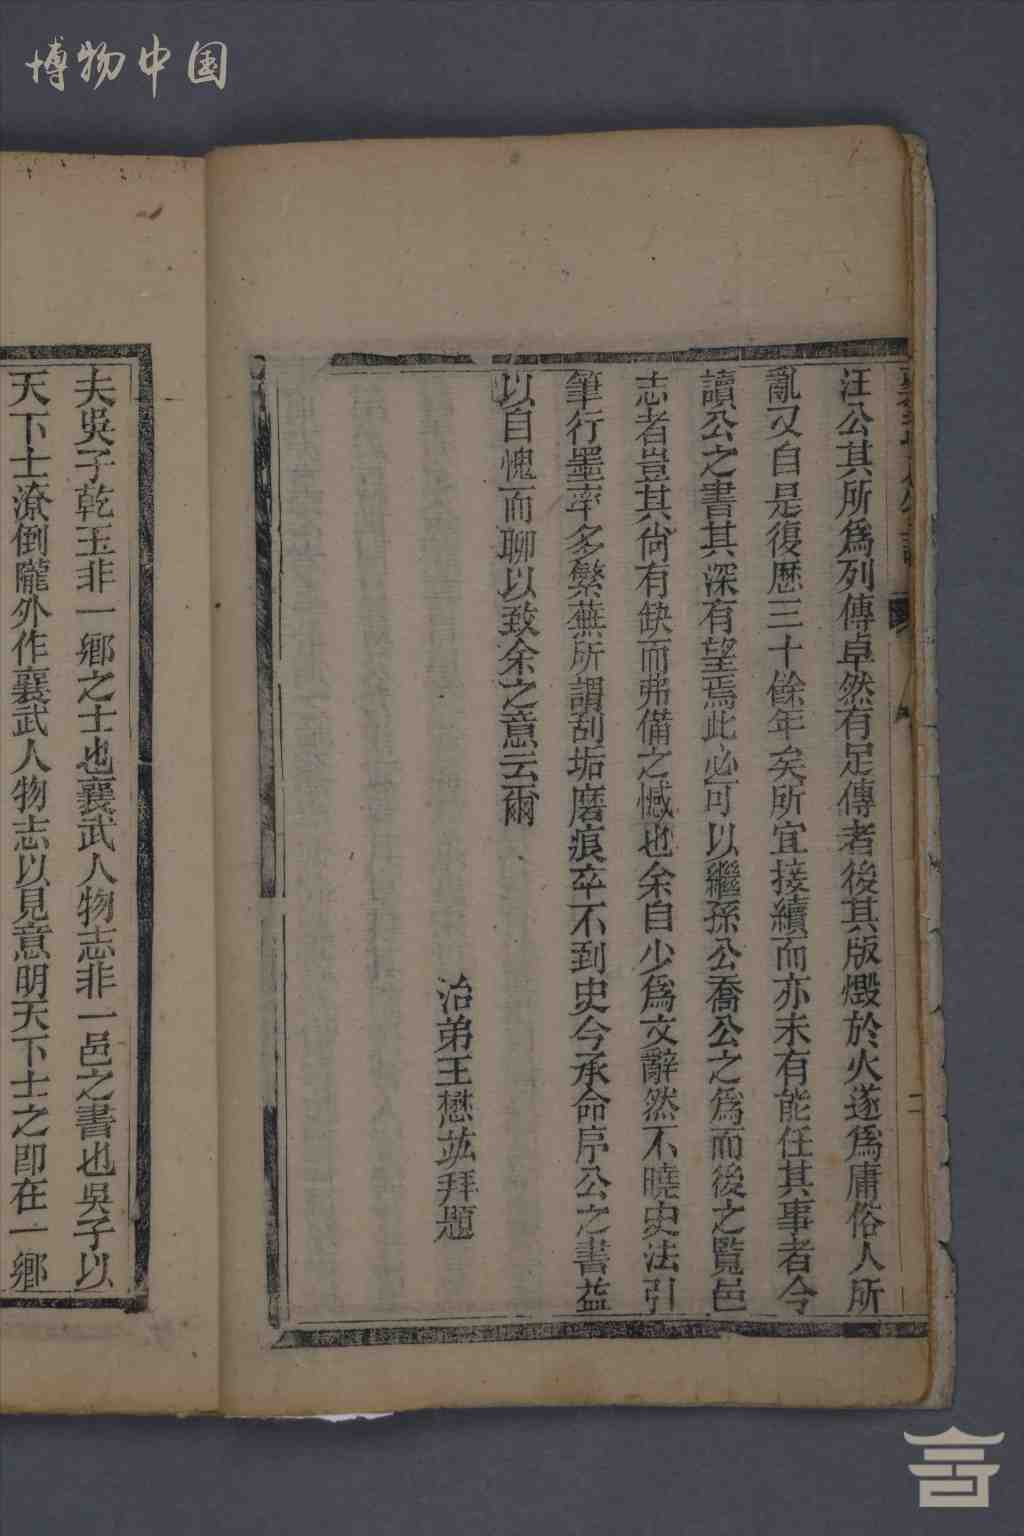 博物中国
汪公其所爲列傳卓然有足傳者後其版燬於火遂爲庸俗人所
亂又自是復歷三十餘年矣所宜接續而亦未有能任其事者今
讀公之書其深有望焉此必可以繼孫公喬公之爲而後之覽邑
志者豈其尙有缺而弗備之憾也余自少爲文辭然不曉史法引
筆行墨率多繁蕪所謂刮垢磨痕卒不到史今承命序公之書益
以自愧而聊以致余之意云爾
治弟王懋竑拜題
夫吳子乾玉非一鄉之士也襄武人物志非一邑之書也吳子以
天下士潦倒隴外作襄武人物志以見意明天下士之卽在一鄉
二